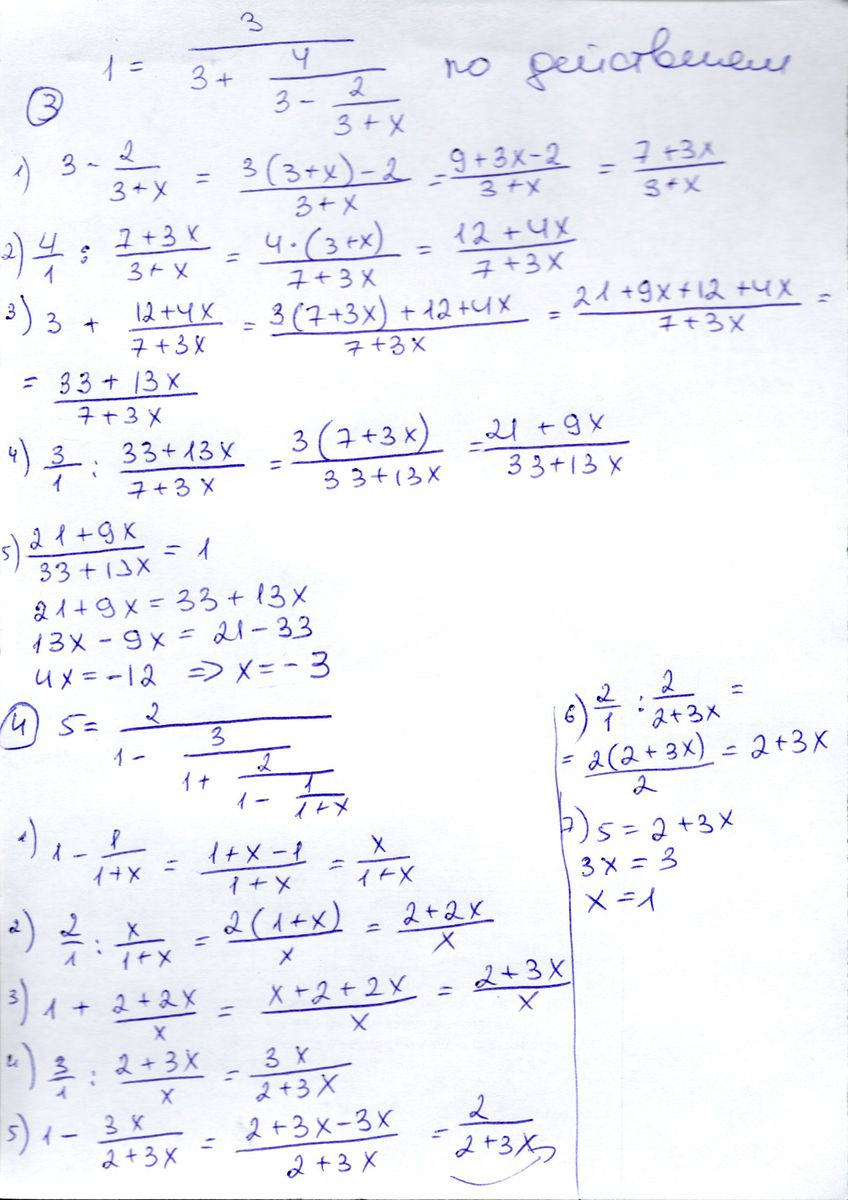 ③ 1 = 3/(3 + 4/(3 - 2/(3 + x))) по действием
1) 3 - 2/(3+x) = (3(3+x)-2)/(3+x) = (9+3x-2)/(3+x) = (7+3x)/(3+x)
2) 4/1 : (7+3x)/(3+x) = (4·(3+x))/(7+3x) = (12+4x)/(7+3x)
3) 3 + (12+4x)/(7+3x) = (3(7+3x)+12+4x)/(7+3x) = (21+9x+12+4x)/(7+3x) =
= (33+13x)/(7+3x)
4) 3/1 : (33+13x)/(7+3x) = (3(7+3x))/(33+13x) = (21+9x)/(33+13x)
5) (21+9x)/(33+13x) = 1
21+9x = 33+13x
13x - 9x = 21-33
4x = -12 => x = -3
④ 5 = 2/(1 - 3/(1 + 2/(1 - 1/(1+x))))
1) 1 - 1/(1+x) = (1+x-1)/(1+x) = x/(1+x)
2) 2/1 : x/(1+x) = (2(1+x))/x = (2+2x)/x
3) 1 + (2+2x)/x = (x+2+2x)/x = (2+3x)/x
4) 3/1 : (2+3x)/x = 3x/(2+3x)
5) 1 - 3x/(2+3x) = (2+3x-3x)/(2+3x) = 2/(2+3x)
6) 2/1 : 2/(2+3x) =
= (2(2+3x))/2 = 2+3x
7) 5 = 2+3x
3x = 3
x = 1